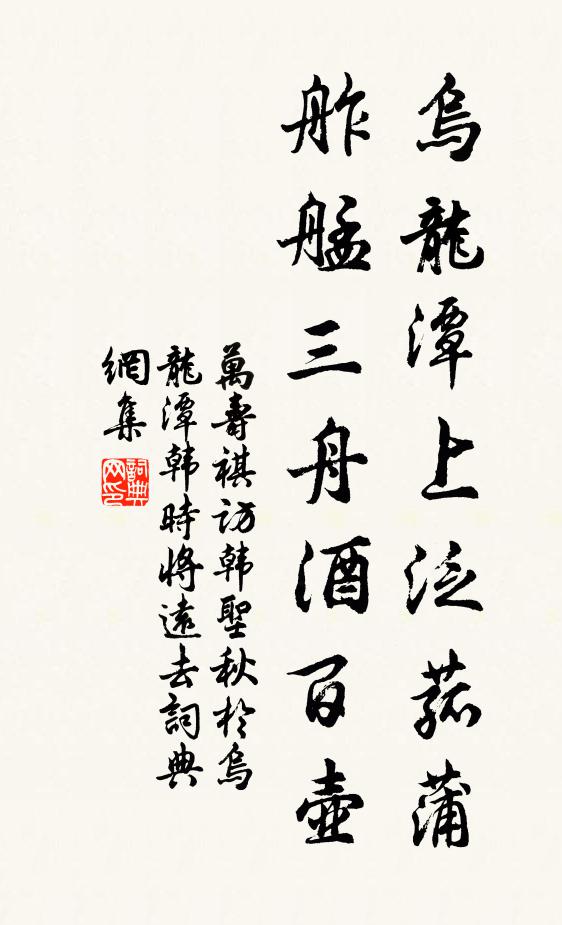 烏龍潭上泛菰蒲
舴艋三舟酒百壺
萬壽祺訪韓聖秋於烏
龍潭韓時將遠去詞典
網集
詞典
网印